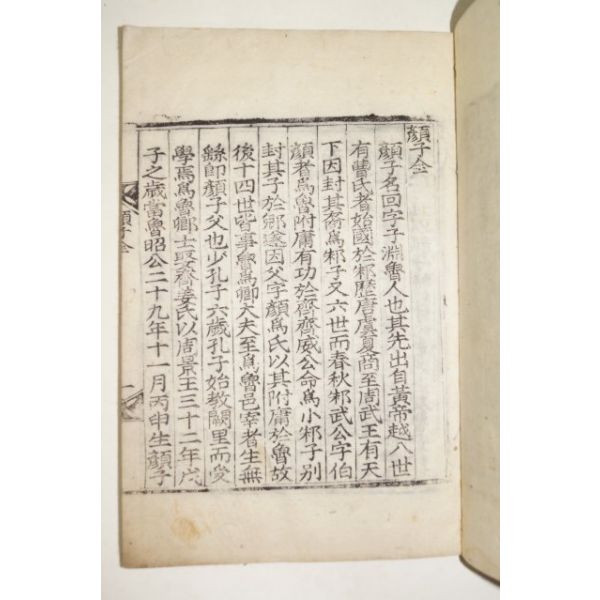 顔子全
顔子名回字子淵魯人也其先出自黃帝越八世
有曹氏者始國於邾歷唐虞夏商至周武王有天
下因封其裔爲邾子又六世而春秋邾武公字伯
顔者爲魯附庸有功於齊齊威公命爲小邾子别
封其子於郳遂因父字顔爲氏以其附庸於魯故
後十四世皆事魯爲卿大夫至爲魯邑宰者生無
繇即顔子父也少孔子六歲孔子始教闕里而受
學焉爲魯卿士娶齊姜氏以周景王三十二年戊
子之歲當魯昭公二十九年十一月丙申生顔子
顔子全